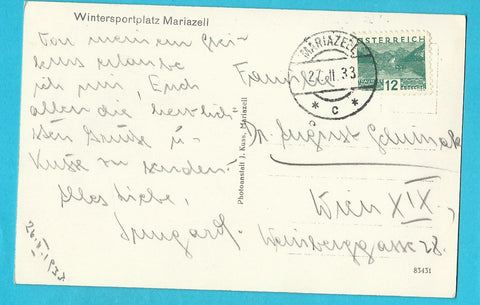 Wintersportplatz Mariazell
Von meinem Ski-
kurs erlaube
ich mir, Euch
allen die herzlich-
sten Grüße u.
Küsse zu senden.
Alles Liebe,
Irmgard.
1933
Photoanstalt J. Kuss, Mariazell
MARIAZELL
27.II.33
* c *
ÖSTERREICH
12
Familie
Dr. August
Wien XIX.,
Weinberggasse 28.
83431